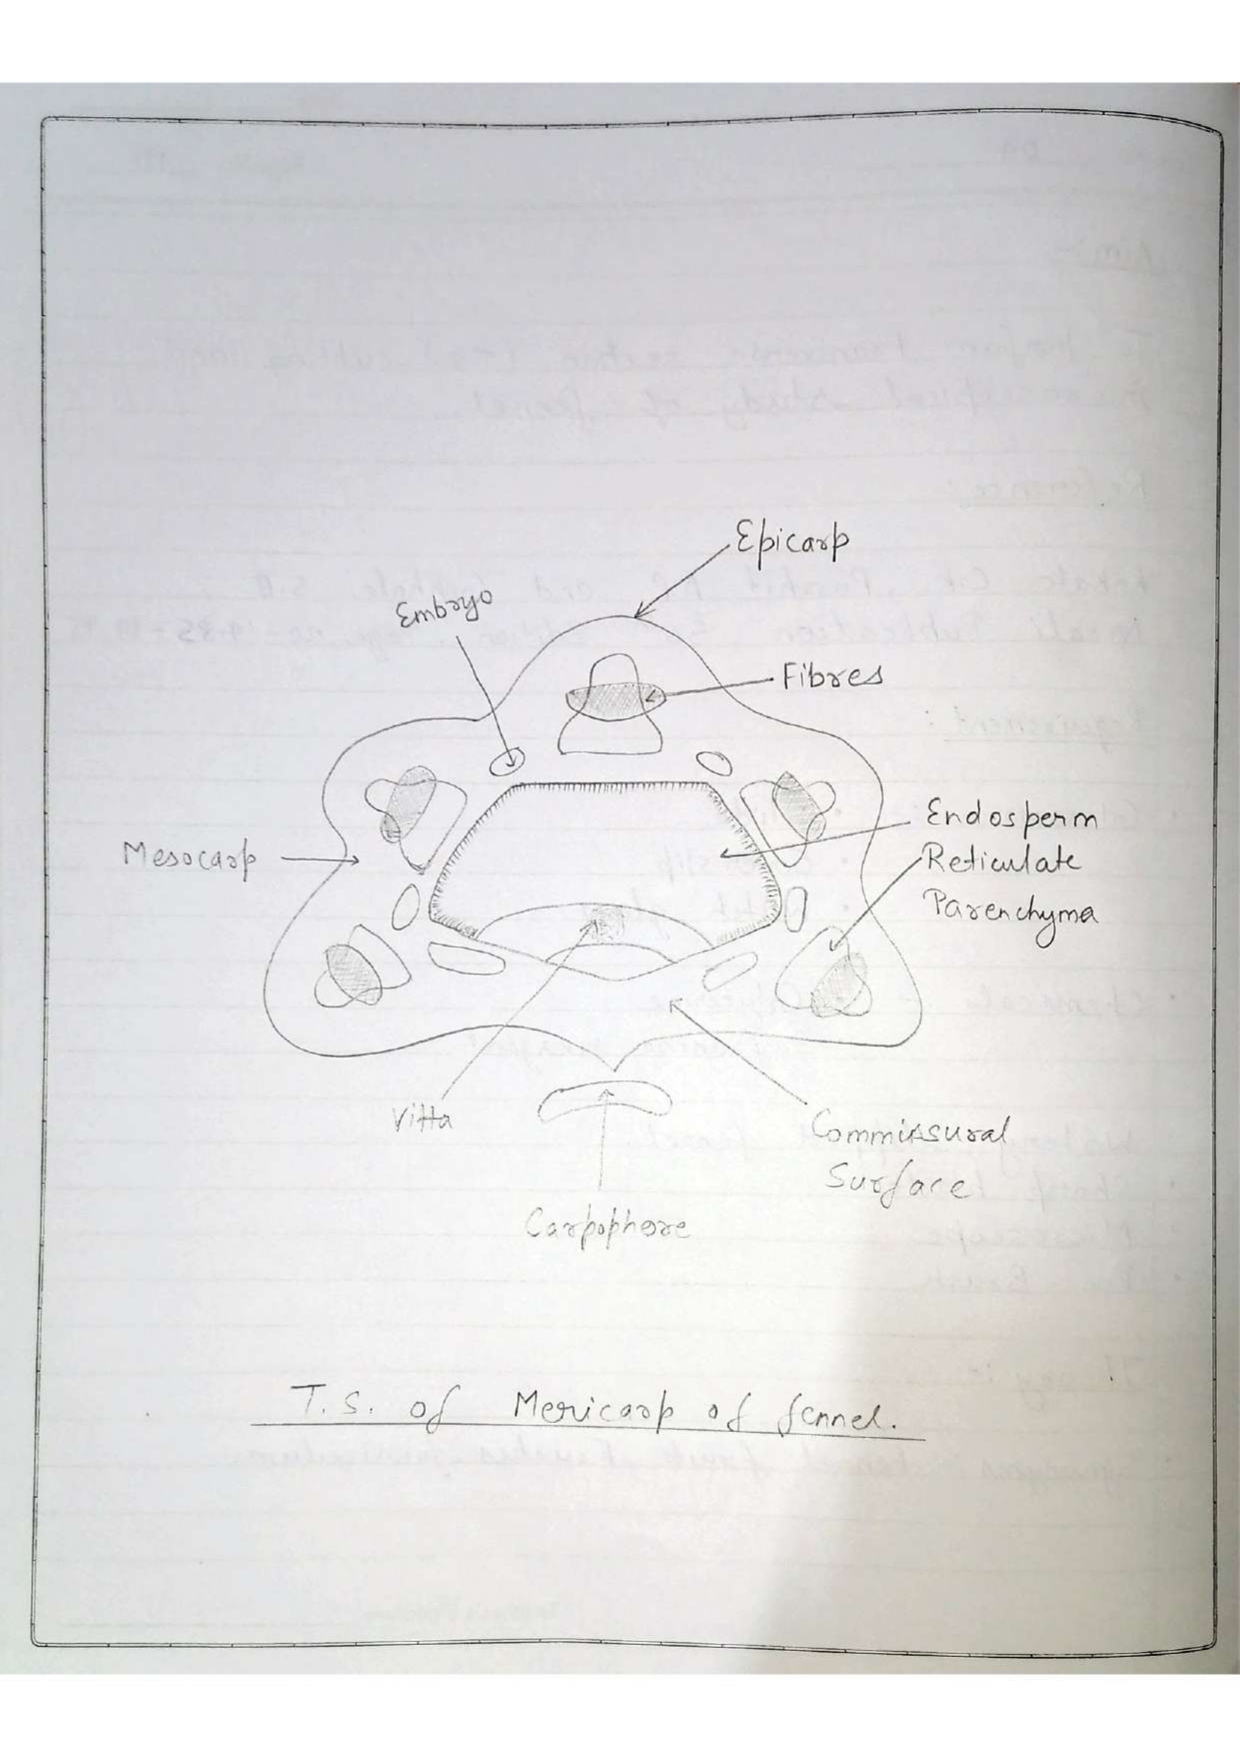 Epicarp
Embryo
Fibres
Endosperm
Mesocarp
Reticulate
Parenchyma
Vitta
Commissural
Surface
Carpophore
T.S. of Mericarp of fennel.